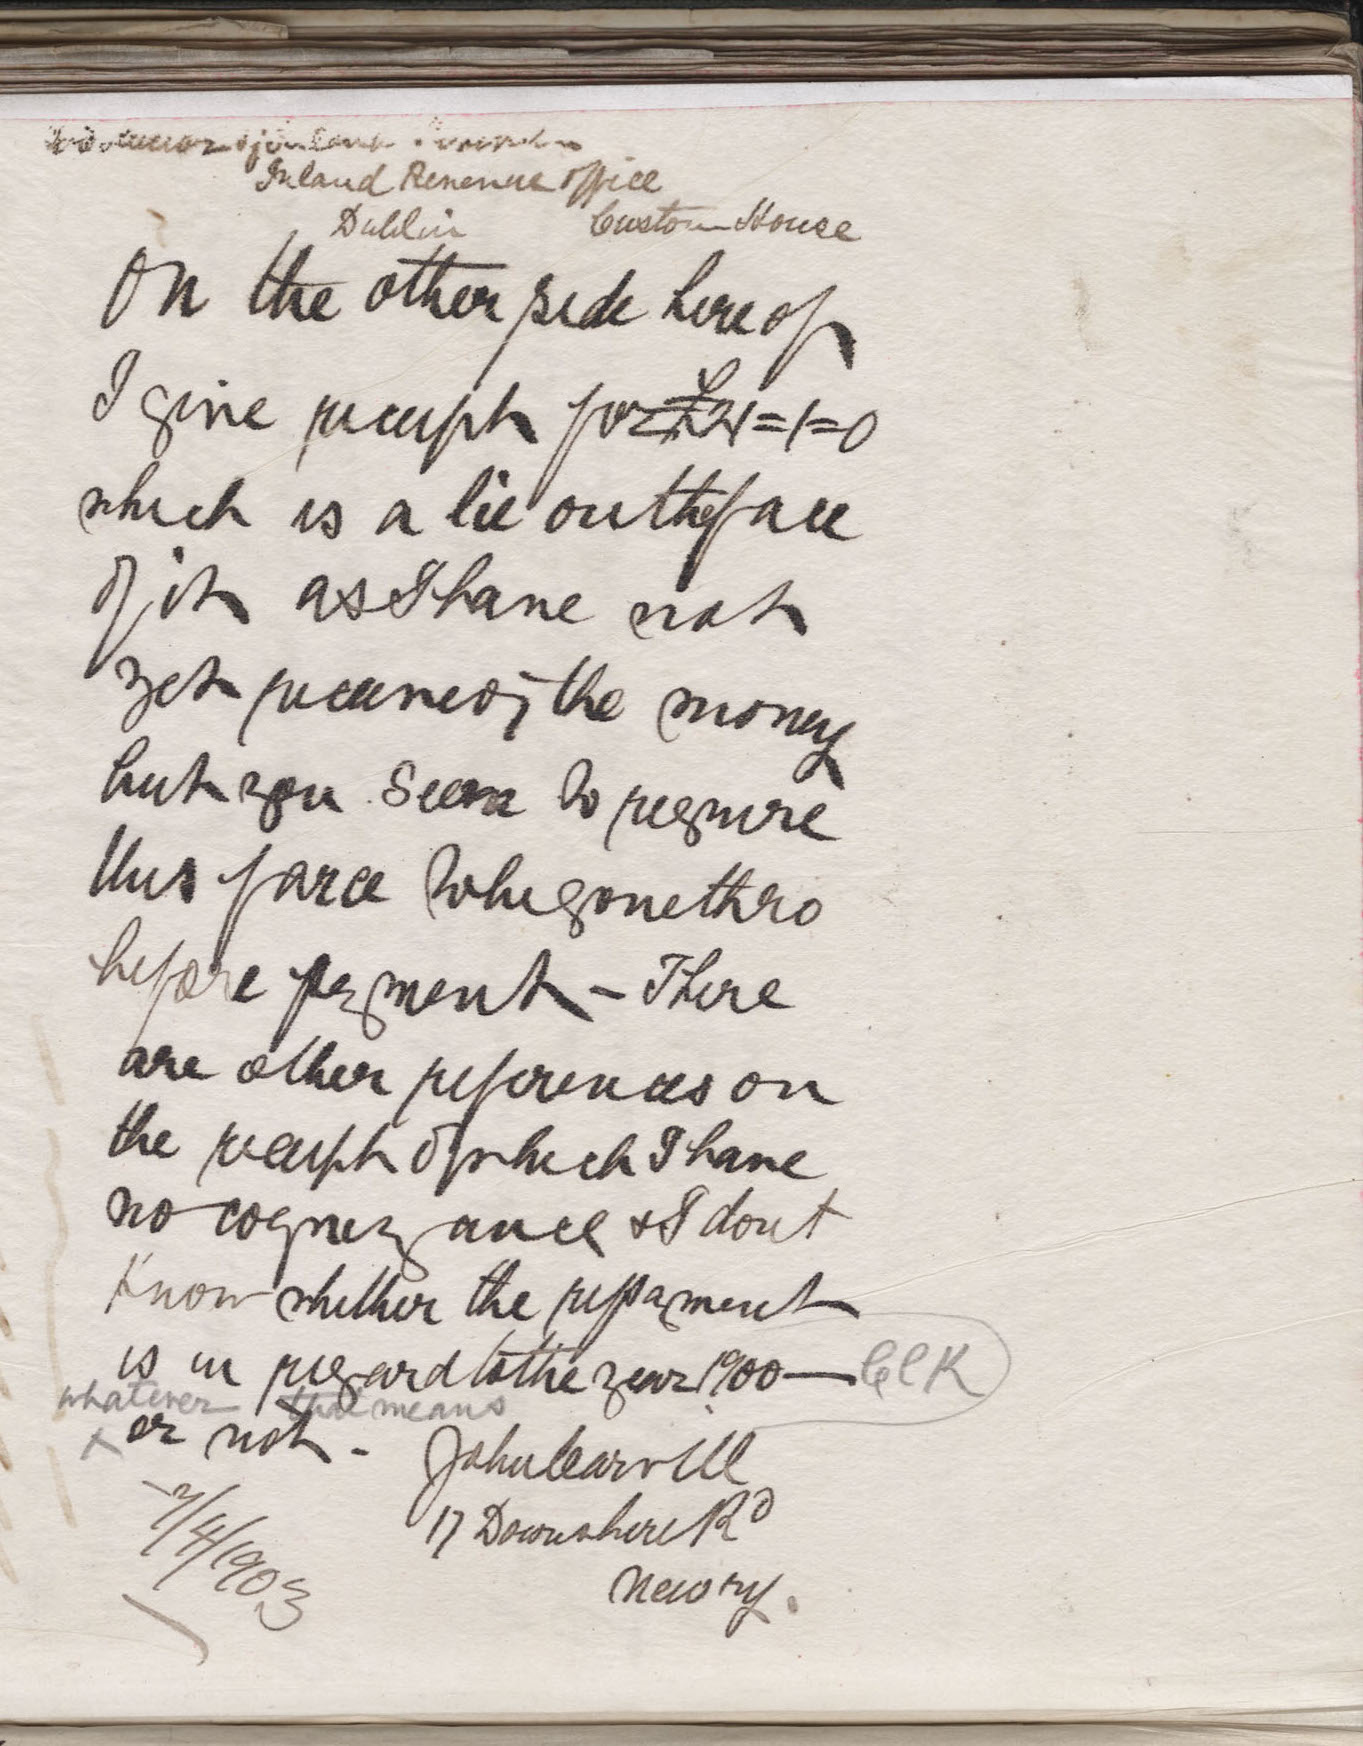 Inland Revenue office
Dublin Custom House
On the other side hereof
I give receipt for £21=1=0
which is a lie on the face
of it as I have not
yet received the money
but you seem to require
this farce to be gone thro
before payment - There
are other references on
the receipt of which I have
no cognizance & I dont
Know whether the repayment
is in regard to the year 1900 —
whatever that means
or not -
John Carvill
17 Downshire Rd
Newry.
7/4/1903